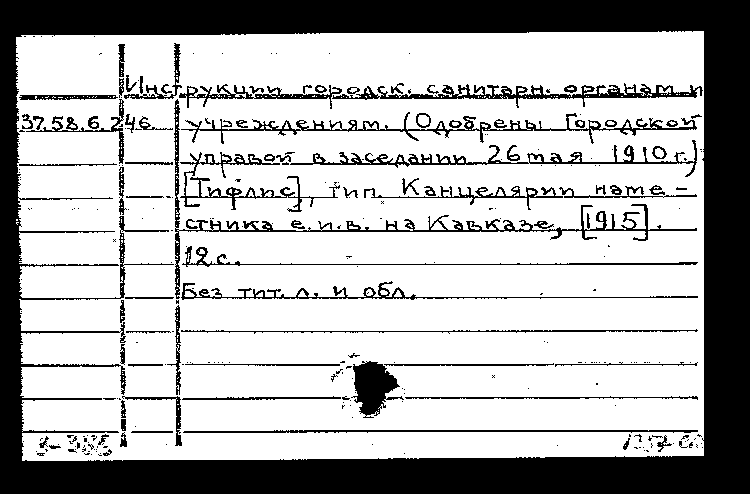 Инструкции городск. санитарн. органам и
37.58.6.246. учреждениям. (Одобрены Городской
управой в заседании 26 мая 1910 г.).
[Тифлис], тип. Канцелярии наме-
стника е.и.в. на Кавказе, [1915].
12 с.
Без тит. л. и обл.